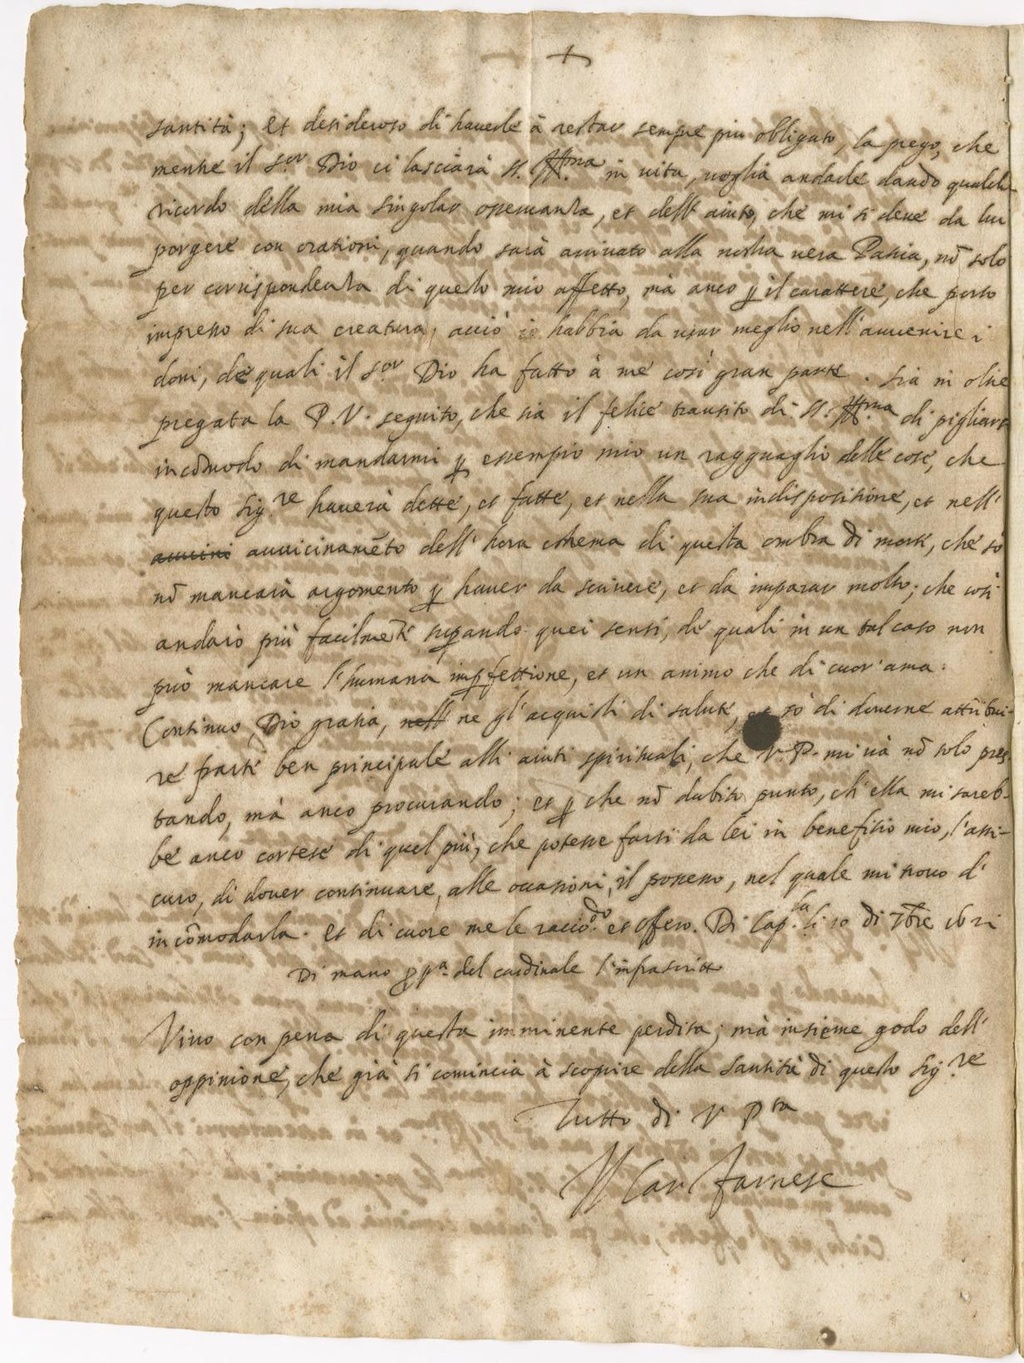 santità; et desideroso di haverle à restar sempre piu obligato, la prego, che
mentre il S.or Dio ci lasciarà S. S. Ill.ma in vita, voglia andarle dando qualche
ricordo della mia singolar osservanza, et dell' aiuto, che mi si deve da lui
porgere con orationi, quando sarà arrivato alla nostra vera Patria, nō solo
per corrispondenza di questo mio affetto, mà anco ꝑ il carattere, che porto
impresso di sua creatura, acciò io habbia da usar meglio nell' avvenire i
doni, de quali il S.or Dio ha fatto à me così gran parte. Sia in oltre
pregata la P. V. seguito, che sia il felice transito di S. S. Ill.ma di pigliarsi
incōmodo di mandarmi ꝑ essempio mio un ragguaglio delle cose, che
questo Sig.re haverà dette, et fatte, et nella sua indispositione, et nell'
avvicinamēto dell' hora estrema di questa ombra di morte, che so
nō mancarà argomento ꝑ haver da scrivere, et da imparar molto; che così
andarò più facilmēte suꝑando quei sensi, de quali in un tal caso non
può mancare l'humana imꝑfettione, et un animo che di cuor' ama.
Continuo, Dio gratia, ne gl' acquisti di salute, et sò di doverne attribui-
re parte ben principale alli aiuti spirituali, che V. P. mi và nō solo pres-
tando, mà anco procurando; et ꝑ che nō dubito punto, ch' ella mi sareb-
be anco cortese di quel più, che potesse farsi da lei in benefitio mio, l'assi-
curo, di dover continuare, alle occasioni, il possesso, nel quale mi trovo d'
incōmodarla. et di cuore me le racc.do et offero. Di Cap.la li 10 di 7bre
Di mano ꝓp.a del cardinale l'infrascritto
Vivo con pena di questa imminente perdita; mà insieme godo dell'
oppinione, che già si comincia à scoprire della santità di questo Sig.re
Tutto di V P.tà
Il Car Farnese